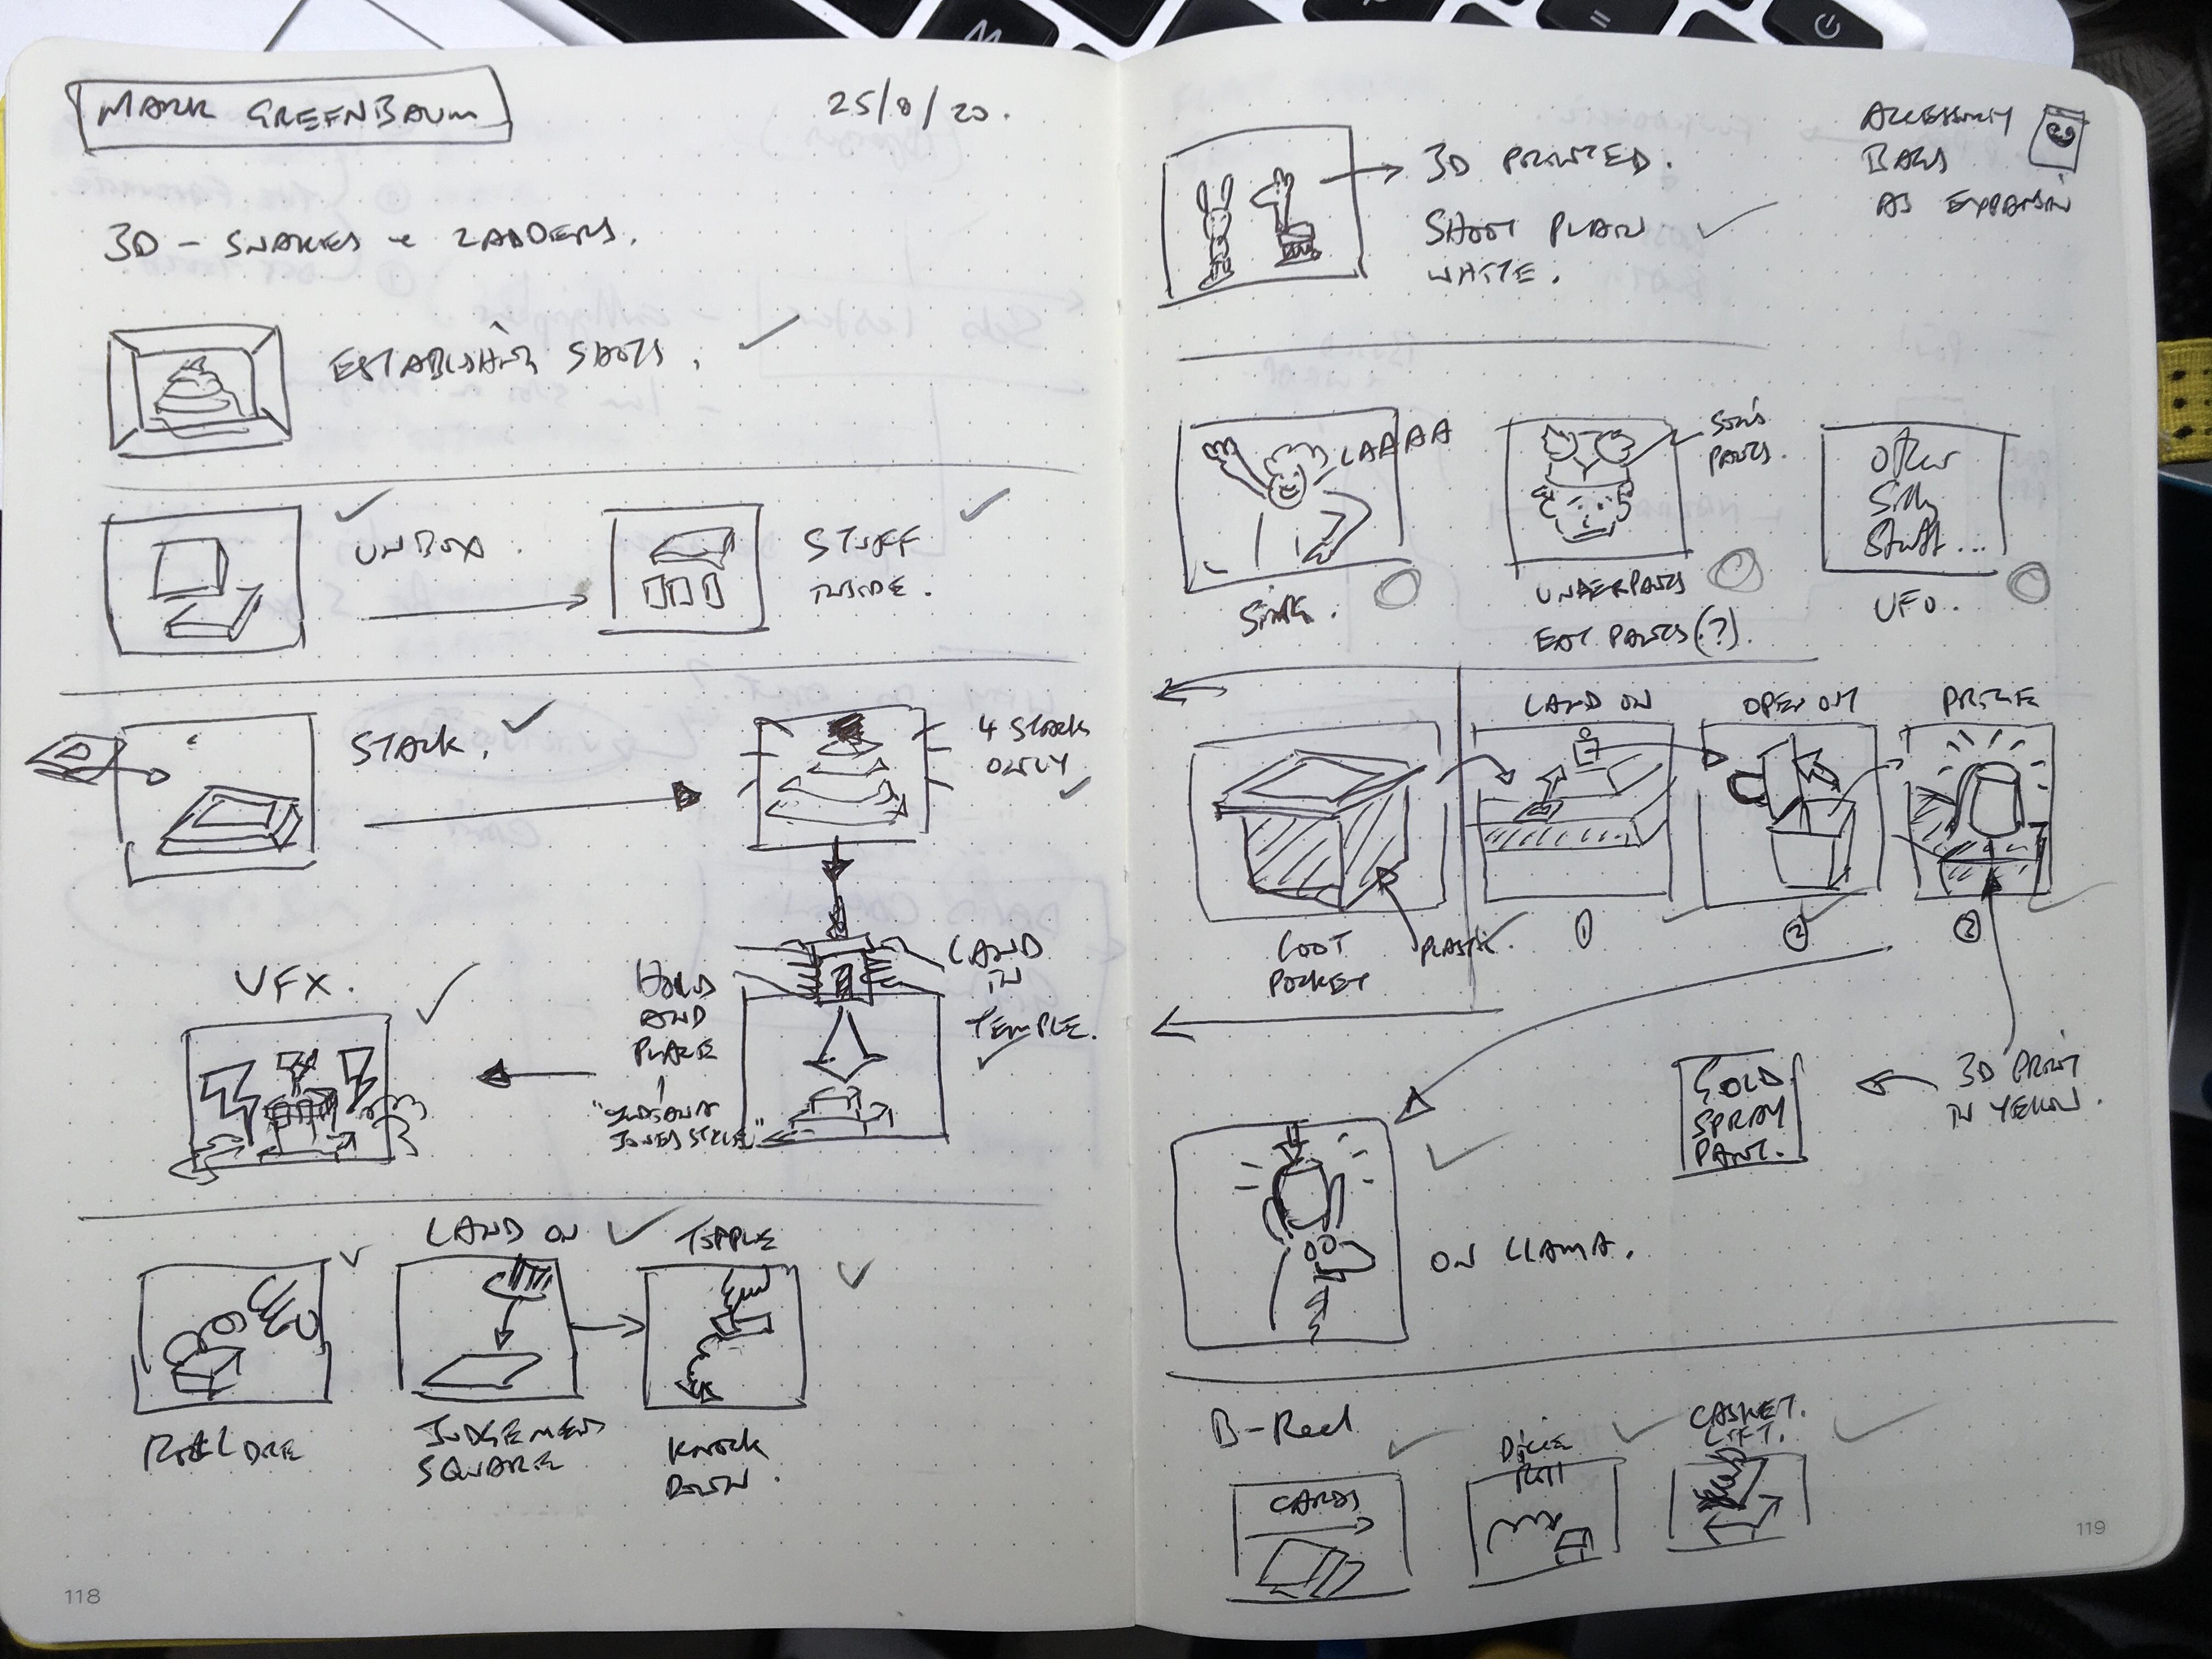 MARK GREENBAUM
25/8/20.
3D - SNAKES & LADDERS.
ESTABLISHING SHOTS.
UNBOX.
STUFF
INSIDE.
STACK.
4 STACK
ONLY
LAND
IN
TEMPLE.
HOLD
AND
PLACE
"INDIANA
JONES STYLE"
VFX.
LAND ON
TOPPLE
ROLL DICE
JUDGEMENT
SQUARE
KNOCK
DOWN.
118
3D PRINTED.
SHOOT PLAIN
WHITE.
ACCESSORY
BAGS
AS EXPANSION
LAAAA
SING.
SON'S
PANTS.
UNDERPANTS
EAT PANTS(?).
Other
Silly
Stuff...
UFO.
LAND ON
OPEN OUT
PRIZE
LOOT
POCKET
PLASTIC.
1
2
3
3D PRINT
IN YELLOW.
GOLD
SPRAY
PAINT.
ON LLAMA.
B-Reel
CARDS
DICE
ROLL
CASKET.
LIFT.
119